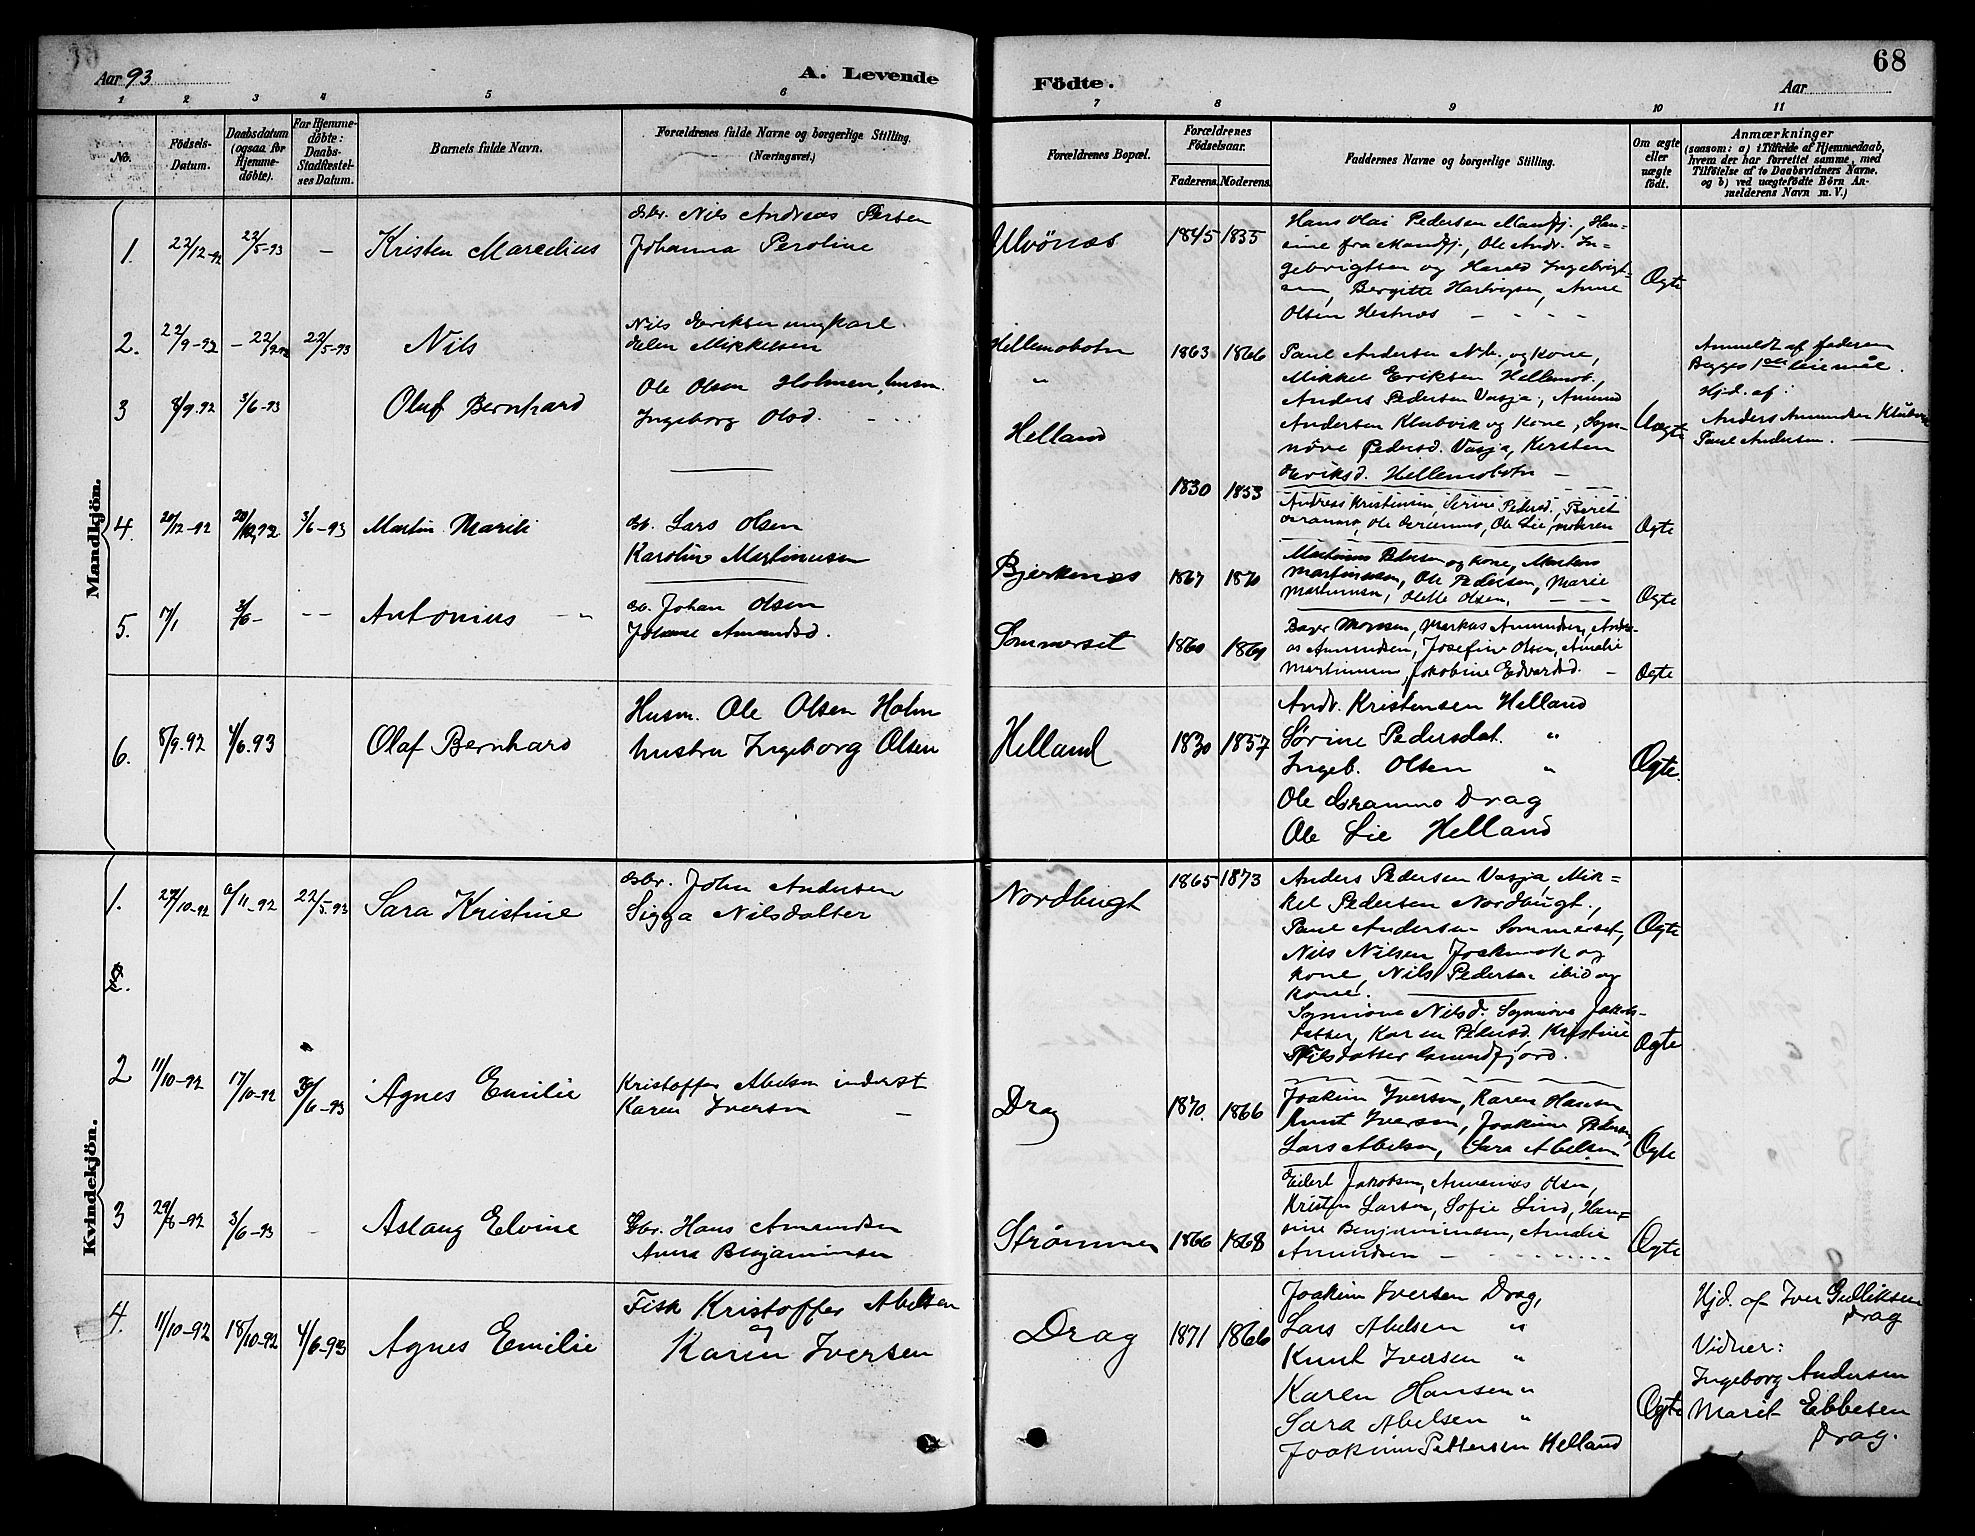 68
Aar 93
A. Levende
Födte.
Aar
1 2 3 4 5 6 7 8 9 10 11
No.
Födsels-Datum.
Daabsdatum (ogsaa for Hjemme-döbte).
For Hjemme-döbte: Daabs-Stadfæstel-ses Datum.
Barnets fulde Navn.
Forældrenes fulde Navne og borgerlige Stilling.
(Næringsvei.)
Forældrenes Bopæl.
Forældrenes Födselsaar.
Faderens. Moderens.
Faddernes Navne og borgerlige Stilling.
Om ægte eller uægte födt.
Anmærkninger
(saasom: a) i Tilfælde af Hjemmedaab,
hvem der har forrettet samme, med
Tilföielse af to Daabsvidners Navne.
og b) ved uægtefödte Börn An-
melderens Navn m. V.)
Mandkjön.
1. 22/12-92 22/5-93 – Kristen Marselius
Gbr. Nils Andreas Persen
Johanna Peroline
Ulvönes 1845 1835
Hans Olai Pedersen Mandfj., Han-
sine fra Mandfj., Ole Andr. In-
gebrigtsen og Harald Ingebrigt-
sen, Bergitte Hartvigsen, Anne
Olsen Hestnes – – – –
Ægte
2. 22/9-92 – 22/9-92 22/5-93 Nils
Nils Eriksen ungkarl.
Elen Mikkelsen
Hellemobotn 1863 1866
Paul Andersen N.b. og kone,
Mikkel Eriksen Hellemob.,
Anders Pedersen Vasja, Amund
Andersen Klubvik og kone, Syn-
növe Pedersd. Vasja, Kersten
Eriksd. Hellemobotn –
Uægte
Anmeldt af faderen
Begges 1ste leiemål.
Hjd. af:
Anders Amundsen Klubvik
Paul Andersen.
3 8/9 92 3/6-93 Oluf Bernhard
Ole Olsen Holmen, husm.
Ingeborg Olsd.
" Helland
1830 1853
Andreas Kristensen, Serine Pedersd., Beret
Gramno, Ole Gramno, Ole Lie, moderen
Ægte
4. 20/12-92 3/6-93 Martin Marili
Gb. Lars Olsen
Karoline Martinusen
Bjerkenes 1867 1870
Martinus Pedersen og kone, Martens
Martinusen, Ole Pedersen, Marie
Martinusen, Olette Olsen.
Ægte
5. 17/1 3/6- – – Antonius – "
Gb. Johan Olsen
Johanne Amundsd.
Sommerset 1860 1861
Bager Monsen, Markus Amundsen, Andre-
as Amundsen, Josefine Olsen, Amalie
Martinusen, Jakobine Edvardsd. –
Ægte
6. 8/9.92 4/6.93 Olaf Bernhard
Husm. Ole Olsen Holm
hustru Ingeborg Olsen
Helland 1830 1857
Andr. Kristensen Helland
Sørine Pedersdat. "
Ingeb. Olsen "
Ole Gramno Drag
Ole Lie Helland
Ægte.
Kvindekjön.
1. 27/10-92 6/11-92 22/5-93 Sara Kristine
Gbr. John Andersen
Sigga Nilsdatter
Nordbugt 1865 1873
Anders Pedersen Vasja, Mik-
kel Pedersen Nordbugt.,
Paul Andersen Sommerset,
Nils Nilsen Jockmok og
kone, Nils Pedersen ibid og
kone.
Ægte
2.
Synnöve Nilsd. Synnöve Jakobs-
datter, Karen Pedersd. Kristine
Nilsdatter Grundfjord.
Ægte
2 11/10-92 17/10-92 3/6-93 Agnes Emilie
Kristoffer Abelsen inderst
Karen Iversen –
Drag 1870. 1866
Joakim Iversen, Karen Hansen
Knut Iversen, Joakim Pedersen,
Lars Abelsen, Sara Abelsen
Ægte
3 29/8-92 3/6-93 – Aslaug Elvine
Gbr. Hans Amundsen
Anna Benjaminsen
Strømmen 1866 1868
Eilert Jakobsen, Annanias Olsen,
Kristen Larsen, Sofie Lind, Han-
sine Benjaminsen, Amalie
Amundsen –
Ægte
4. 11/10-92 18/10-92 4/6-93 Agnes Emilie
Fisk Kristoffer Abelsen
og
Karen Iversen
Drag 1871 1866
Joakim Iversen Drag,
Lars Abelsen "
Knut Iversen "
Karen Hansen "
Sara Abelsen "
Joakim Pettersen Helland
Ægte
Hjd. af Iver Gulliksen
Drag
Vidner:
Ingeborg Andersen
Marit Ebbesen
Drag.